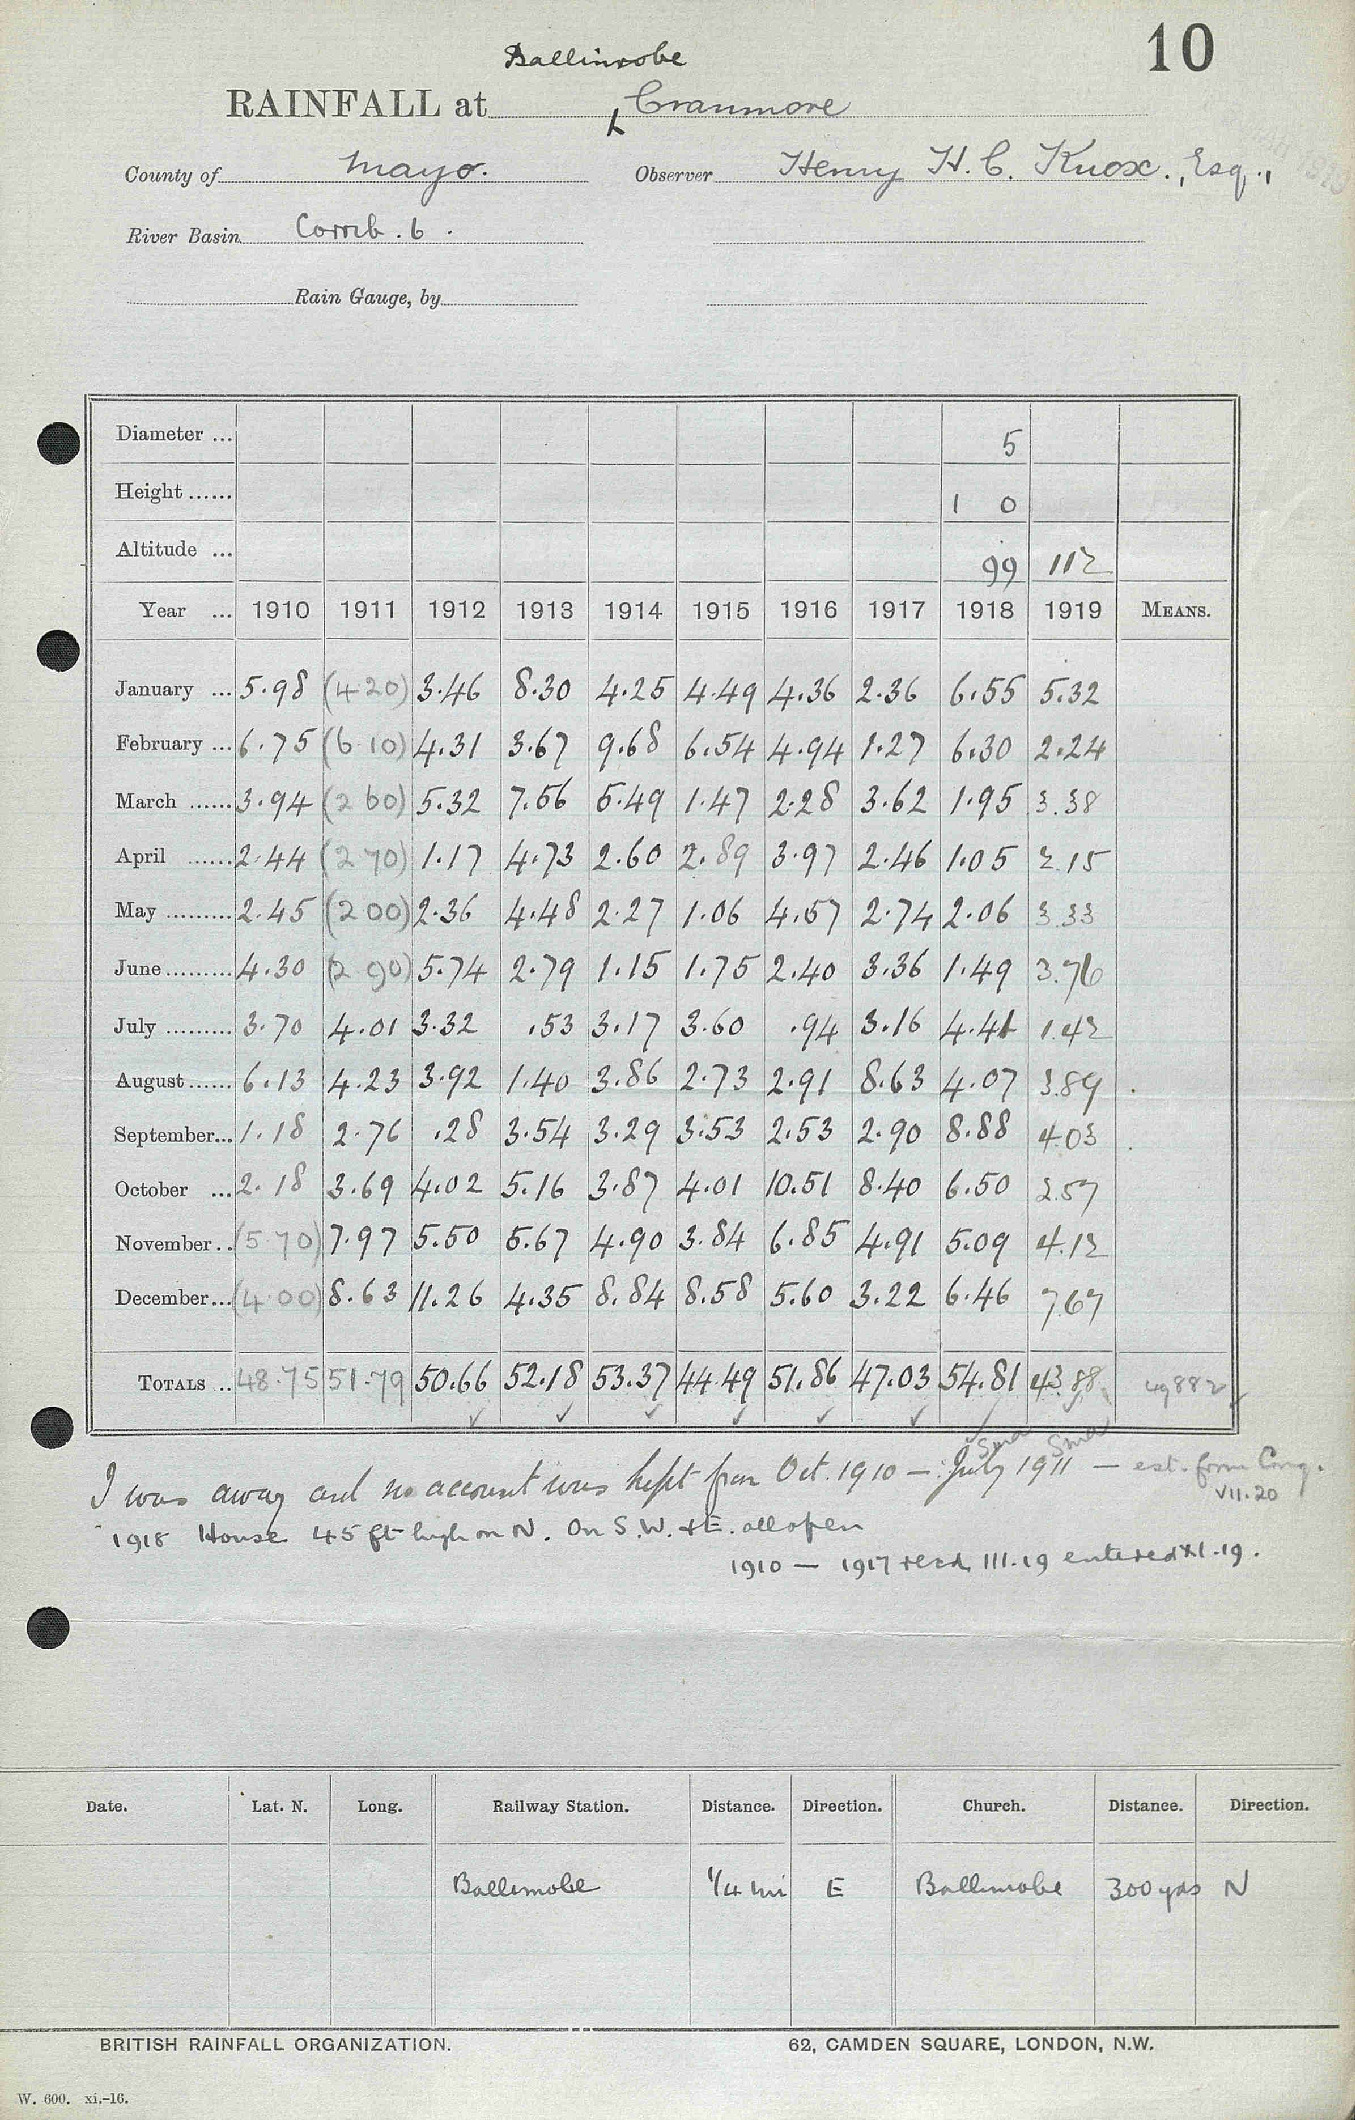 10
Ballinrobe
RAINFALL at Cranmore
County of Mayo. Observer Henry H. C. Knox., Esq.,
River Basin Corrib. 6.
Rain Gauge, by
Diameter ... 5
Height ...... 1 0
Altitude ... 99 112
Year ... 1910 1911 1912 1913 1914 1915 1916 1917 1918 1919 MEANS.
January ... 5.98 (4.20) 3.46 8.30 4.25 4.49 4.36 2.36 6.55 5.32
February ... 6.75 (6.10) 4.31 3.67 9.68 6.54 4.94 1.27 6.30 2.24
March ...... 3.94 (2.60) 5.32 7.56 5.49 1.47 2.28 3.62 1.95 3.38
April ...... 2.44 (2.70) 1.17 4.73 2.60 2.89 3.97 2.46 1.05 2.15
May ......... 2.45 (2.00) 2.36 4.48 2.27 1.06 4.57 2.74 2.06 3.33
June ......... 4.30 (2.90) 5.74 2.79 1.15 1.75 2.40 3.36 1.49 3.76
July ......... 3.70 4.01 3.32 .53 3.17 3.60 .94 3.16 4.41 1.42
August ...... 6.13 4.23 3.92 1.40 3.86 2.73 2.91 8.63 4.07 3.89
September... 1.18 2.76 .28 3.54 3.29 3.53 2.53 2.90 8.88 4.03
October ... 2.18 3.69 4.02 5.16 3.87 4.01 10.51 8.40 6.50 2.57
November.. (5.70) 7.97 5.50 5.67 4.90 3.84 6.85 4.91 5.09 4.12
December... (4.00) 8.63 11.26 4.35 8.84 8.58 5.60 3.22 6.46 7.67
TOTALS .. 48.75 51.79 50.66 52.18 53.37 44.49 51.86 47.03 54.81 43.88 49882
I was away and no account was kept from Oct. 1910 — July 1911 — est. from Cong. VII.20
1918 House 45 ft high on N. On S.W. & E. all open
1910 — 1917 recd. III.19 entered XI.19.
Date. Lat. N. Long. Railway Station. Distance. Direction. Church. Distance. Direction.
Ballinrobe 1/4 mi E Ballinrobe 300 yds N
BRITISH RAINFALL ORGANIZATION. 62, CAMDEN SQUARE, LONDON, N.W.
W. 600. xi.-16.